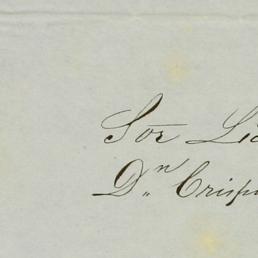 Sor Li
Dn Crisp